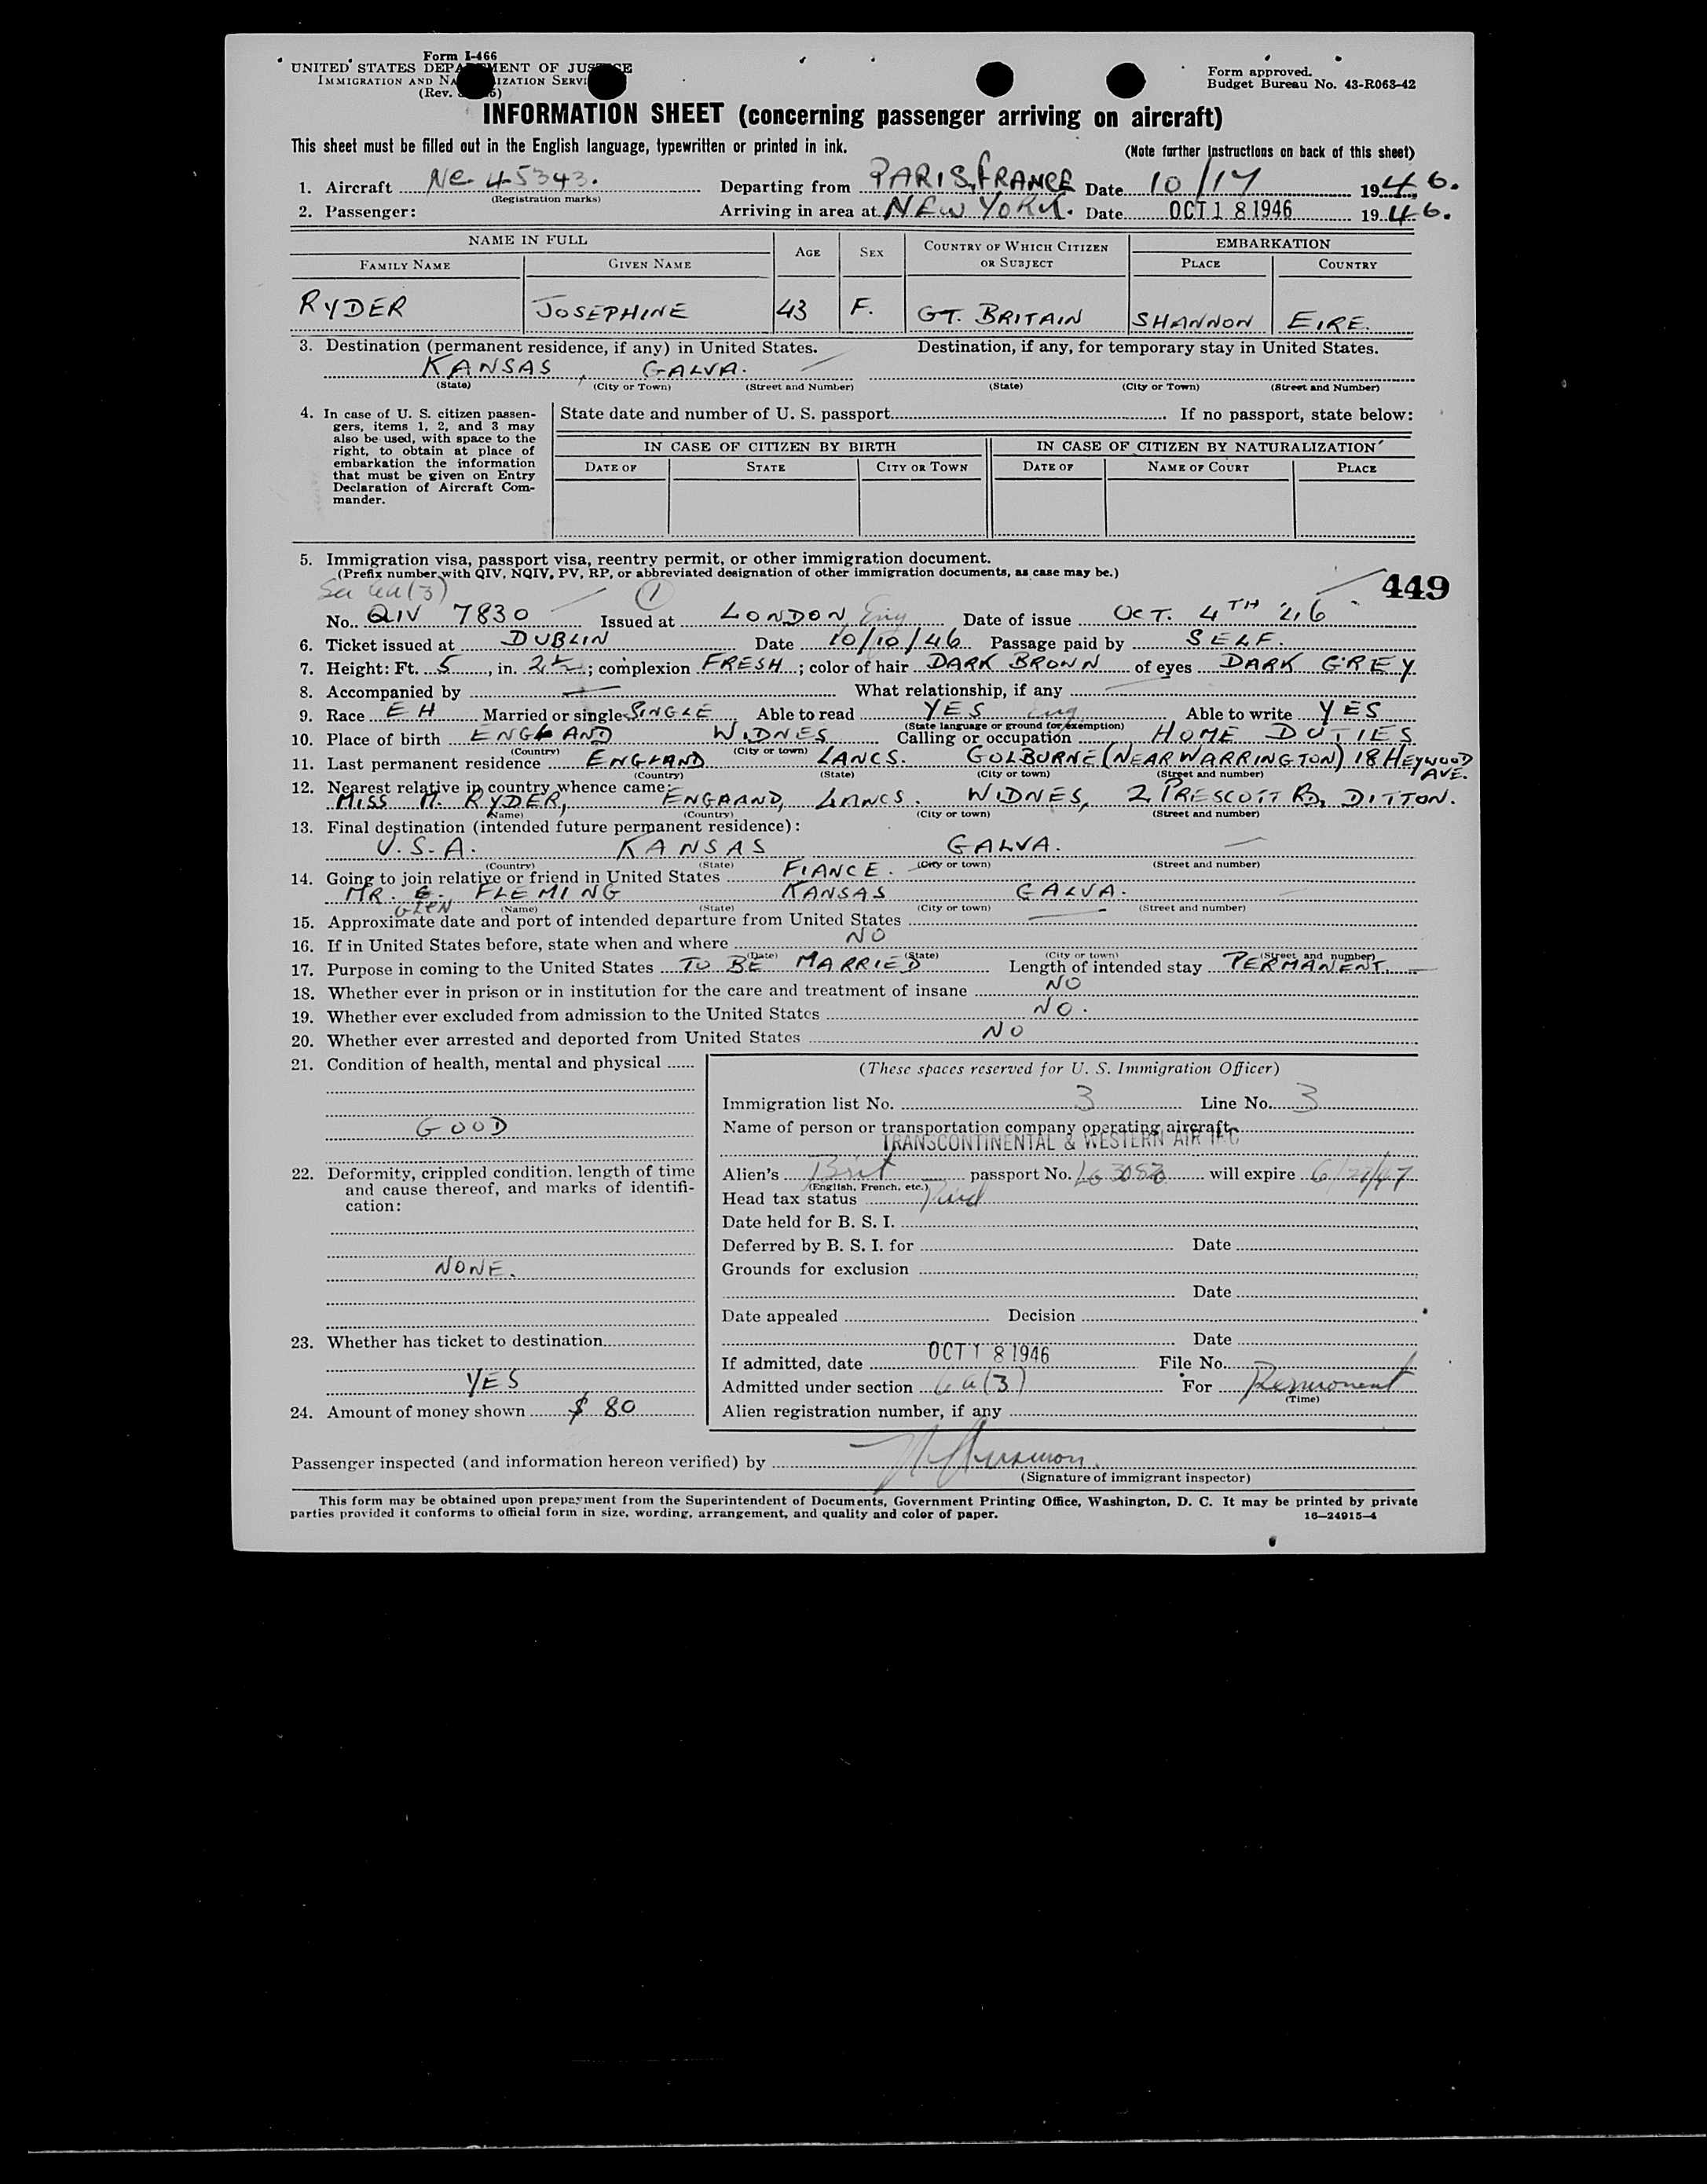 Form I-466
UNITED STATES DEPARTMENT OF JUSTICE
IMMIGRATION AND NATURALIZATION SERVICE
(Rev.
Form approved.
Budget Bureau No. 43-R063-42
INFORMATION SHEET (concerning passenger arriving on aircraft)
This sheet must be filled out in the English language, typewritten or printed in ink.
(Note further instructions on back of this sheet)
1. Aircraft Nc 45343. Departing from PARIS, FRANCE Date 10/17 1946.
(Registration marks)
2. Passenger: Arriving in area at NEW YORK. Date OCT 18 1946 1946.
NAME IN FULL AGE SEX COUNTRY OF WHICH CITIZEN OR SUBJECT EMBARKATION
FAMILY NAME GIVEN NAME PLACE COUNTRY
RYDER JOSEPHINE 43 F. GT. BRITAIN SHANNON EIRE.
3. Destination (permanent residence, if any) in United States. Destination, if any, for temporary stay in United States.
KANSAS, GALVA.
(State) (City or Town) (Street and Number) (State) (City or Town) (Street and Number)
4. In case of U. S. citizen passen-
gers, items 1, 2, and 3 may
also be used, with space to the
right, to obtain at place of
embarkation the information
that must be given on Entry
Declaration of Aircraft Com-
mander.
State date and number of U. S. passport If no passport, state below:
IN CASE OF CITIZEN BY BIRTH IN CASE OF CITIZEN BY NATURALIZATION
DATE OF STATE CITY OR TOWN DATE OF NAME OF COURT PLACE
5. Immigration visa, passport visa, reentry permit, or other immigration document.
(Prefix number with QIV, NQIV, PV, RP, or abbreviated designation of other immigration documents, as case may be.)
449
1
No. QIV 7830 Issued at LONDON Eng Date of issue OCT. 4TH '46
6. Ticket issued at DUBLIN Date 10/10/46 Passage paid by SELF.
7. Height: Ft. 5, in. 2½; complexion FRESH; color of hair DARK BROWN of eyes DARK GREY
8. Accompanied by — What relationship, if any —
9. Race EH Married or single SINGLE Able to read YES Eng Able to write YES
(State language or ground for exemption)
10. Place of birth ENGLAND WIDNES Calling or occupation HOME DUTIES
(Country) (City or town)
11. Last permanent residence ENGLAND LANCS. GOLBURNE (NEAR WARRINGTON) 18 HEYWOOD AVE.
(Country) (State) (City or town) (Street and number)
12. Nearest relative in country whence came:
MISS M. RYDER, ENGLAND, LANCS. WIDNES, 2 PRESCOTT RD, DITTON.
(Name) (Country) (City or town) (Street and number)
13. Final destination (intended future permanent residence):
U.S.A. KANSAS GALVA. —
(Country) (State) (City or town) (Street and number)
14. Going to join relative or friend in United States FIANCE.
MR. G. FLEMING KANSAS GALVA.
GLEN
(Name) (State) (City or town) (Street and number)
15. Approximate date and port of intended departure from United States —
16. If in United States before, state when and where NO
(Date) (State) (City or town) (Street and number)
17. Purpose in coming to the United States TO BE MARRIED Length of intended stay PERMANENT.
18. Whether ever in prison or in institution for the care and treatment of insane NO
19. Whether ever excluded from admission to the United States NO.
20. Whether ever arrested and deported from United States NO
21. Condition of health, mental and physical
GOOD
22. Deformity, crippled condition, length of time
and cause thereof, and marks of identifi-
cation:
NONE.
23. Whether has ticket to destination
YES
24. Amount of money shown $ 80
(These spaces reserved for U. S. Immigration Officer)
Immigration list No. 3 Line No. 3
Name of person or transportation company operating aircraft
TRANSCONTINENTAL & WESTERN AIR INC
Alien's Brit passport No. will expire
(English, French, etc.)
Head tax status Paid
Date held for B. S. I.
Deferred by B. S. I. for Date
Grounds for exclusion
Date
Date appealed Decision
Date
If admitted, date OCT 18 1946 File No.
Admitted under section 6a(3) For Permanent
(Time)
Alien registration number, if any
Passenger inspected (and information hereon verified) by
(Signature of immigrant inspector)
This form may be obtained upon prepayment from the Superintendent of Documents, Government Printing Office, Washington, D. C. It may be printed by private
parties provided it conforms to official form in size, wording, arrangement, and quality and color of paper.
16—24915-4